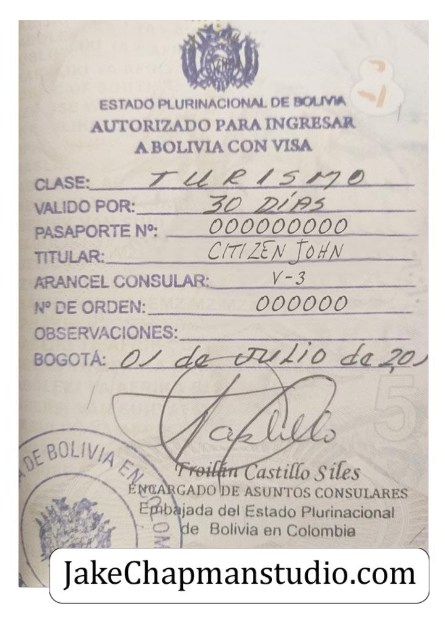 ESTADO PLURINACIONAL DE BOLIVIA
AUTORIZADO PARA INGRESAR
A BOLIVIA CON VISA
CLASE: TURISMO
VALIDO POR: 30 DÍAS
PASAPORTE Nº: 000000000
TITULAR: CITIZEN JOHN
ARANCEL CONSULAR: V-3
Nº DE ORDEN: 000000
OBSERVACIONES:
BOGOTÁ: 01 de JULIO de 201
Froilán Castillo Siles
ENCARGADO DE ASUNTOS CONSULARES
Embajada del Estado Plurinacional
de Bolivia en Colombia
DE BOLIVIA EN
JakeChapmanstudio.com